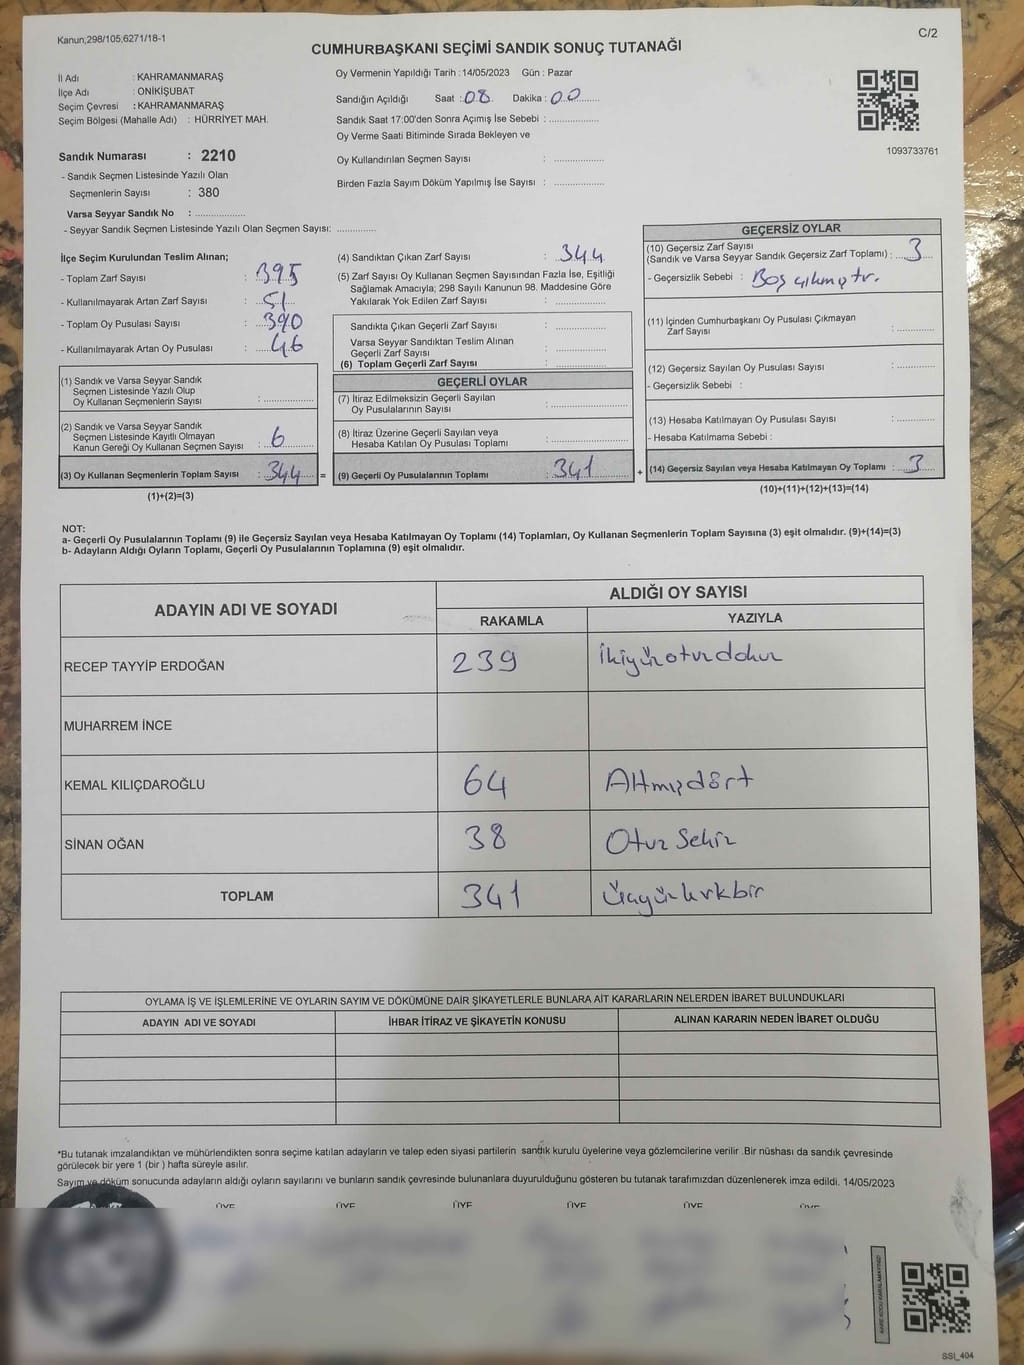 Kanun;298/105;6271/18-1
C/2
CUMHURBAŞKANI SEÇİMİ SANDIK SONUÇ TUTANAĞI
İl Adı : KAHRAMANMARAŞ
İlçe Adı : ONİKİŞUBAT
Seçim Çevresi : KAHRAMANMARAŞ
Seçim Bölgesi (Mahalle Adı) : HÜRRİYET MAH.
Sandık Numarası : 2210
- Sandık Seçmen Listesinde Yazılı Olan
Seçmenlerin Sayısı : 380
Varsa Seyyar Sandık No : ..................
- Seyyar Sandık Seçmen Listesinde Yazılı Olan Seçmen Sayısı: ..............
Oy Vermenin Yapıldığı Tarih : 14/05/2023 Gün : Pazar
Sandığın Açıldığı Saat : 08 Dakika : 00
Sandık Saat 17:00'den Sonra Açımış İse Sebebi : ..................
Oy Verme Saati Bitiminde Sırada Bekleyen ve
Oy Kullandırılan Seçmen Sayısı : ..................
Birden Fazla Sayım Döküm Yapılmış İse Sayısı : ..................
1093733761
İlçe Seçim Kurulundan Teslim Alınan;
- Toplam Zarf Sayısı : 395
- Kullanılmayarak Artan Zarf Sayısı : 51
- Toplam Oy Pusulası Sayısı : 390
- Kullanılmayarak Artan Oy Pusulası : 46
(1) Sandık ve Varsa Seyyar Sandık
Seçmen Listesinde Yazılı Olup
Oy Kullanan Seçmenlerin Sayısı : ..................
(2) Sandık ve Varsa Seyyar Sandık
Seçmen Listesinde Kayıtlı Olmayan
Kanun Gereği Oy Kullanan Seçmen Sayısı : 6
(3) Oy Kullanan Seçmenlerin Toplam Sayısı : 344 =
(1)+(2)=(3)
(4) Sandıktan Çıkan Zarf Sayısı : 344
(5) Zarf Sayısı Oy Kullanan Seçmen Sayısından Fazla İse, Eşitliği
Sağlamak Amacıyla; 298 Sayılı Kanunun 98. Maddesine Göre
Yakılarak Yok Edilen Zarf Sayısı : ..................
Sandıkta Çıkan Geçerli Zarf Sayısı : ..................
Varsa Seyyar Sandıktan Teslim Alınan
Geçerli Zarf Sayısı : ..................
(6) Toplam Geçerli Zarf Sayısı : ..................
GEÇERLİ OYLAR
(7) İtiraz Edilmeksizin Geçerli Sayılan
Oy Pusulalarının Sayısı : ..................
(8) İtiraz Üzerine Geçerli Sayılan veya
Hesaba Katılan Oy Pusulası Toplamı : ..................
(9) Geçerli Oy Pusulalarının Toplamı : 341 +
GEÇERSİZ OYLAR
(10) Geçersiz Zarf Sayısı
(Sandık ve Varsa Seyyar Sandık Geçersiz Zarf Toplamı) : 3
- Geçersizlik Sebebi : Boş çıkmıştır.
(11) İçinden Cumhurbaşkanı Oy Pusulası Çıkmayan
Zarf Sayısı : ..............
(12) Geçersiz Sayılan Oy Pusulası Sayısı : ..............
- Geçersizlik Sebebi :
(13) Hesaba Katılmayan Oy Pusulası Sayısı : ..............
- Hesaba Katılmama Sebebi :
(14) Geçersiz Sayılan veya Hesaba Katılmayan Oy Toplamı : 3
(10)+(11)+(12)+(13)=(14)
NOT:
a- Geçerli Oy Pusulalarının Toplamı (9) ile Geçersiz Sayılan veya Hesaba Katılmayan Oy Toplamı (14) Toplamları, Oy Kullanan Seçmenlerin Toplam Sayısına (3) eşit olmalıdır. (9)+(14)=(3)
b- Adayların Aldığı Oyların Toplamı, Geçerli Oy Pusulalarının Toplamına (9) eşit olmalıdır.
ADAYIN ADI VE SOYADI
ALDIĞI OY SAYISI
RAKAMLA YAZIYLA
RECEP TAYYİP ERDOĞAN 239 ikiyüzotuzdokuz
MUHARREM İNCE
KEMAL KILIÇDAROĞLU 64 Altmışdört
SİNAN OĞAN 38 Otuz Sekiz
TOPLAM 341 Üçyüzkırkbir
OYLAMA İŞ VE İŞLEMLERİNE VE OYLARIN SAYIM VE DÖKÜMÜNE DAİR ŞİKAYETLERLE BUNLARA AİT KARARLARIN NELERDEN İBARET BULUNDUKLARI
ADAYIN ADI VE SOYADI İHBAR İTİRAZ VE ŞİKAYETİN KONUSU ALINAN KARARIN NEDEN İBARET OLDUĞU
*Bu tutanak imzalandıktan ve mühürlendikten sonra seçime katılan adayların ve talep eden siyasi partilerin sandık kurulu üyelerine veya gözlemcilerine verilir .Bir nüshası da sandık çevresinde
görülecek bir yere 1 (bir ) hafta süreyle asılır.
Sayım ve döküm sonucunda adayların aldığı oyların sayılarını ve bunların sandık çevresinde bulunanlara duyurulduğunu gösteren bu tutanak tarafımızdan düzenlenerek imza edildi. 14/05/2023
ÜYE ÜYE ÜYE ÜYE ÜYE ÜYE
SSİ_404